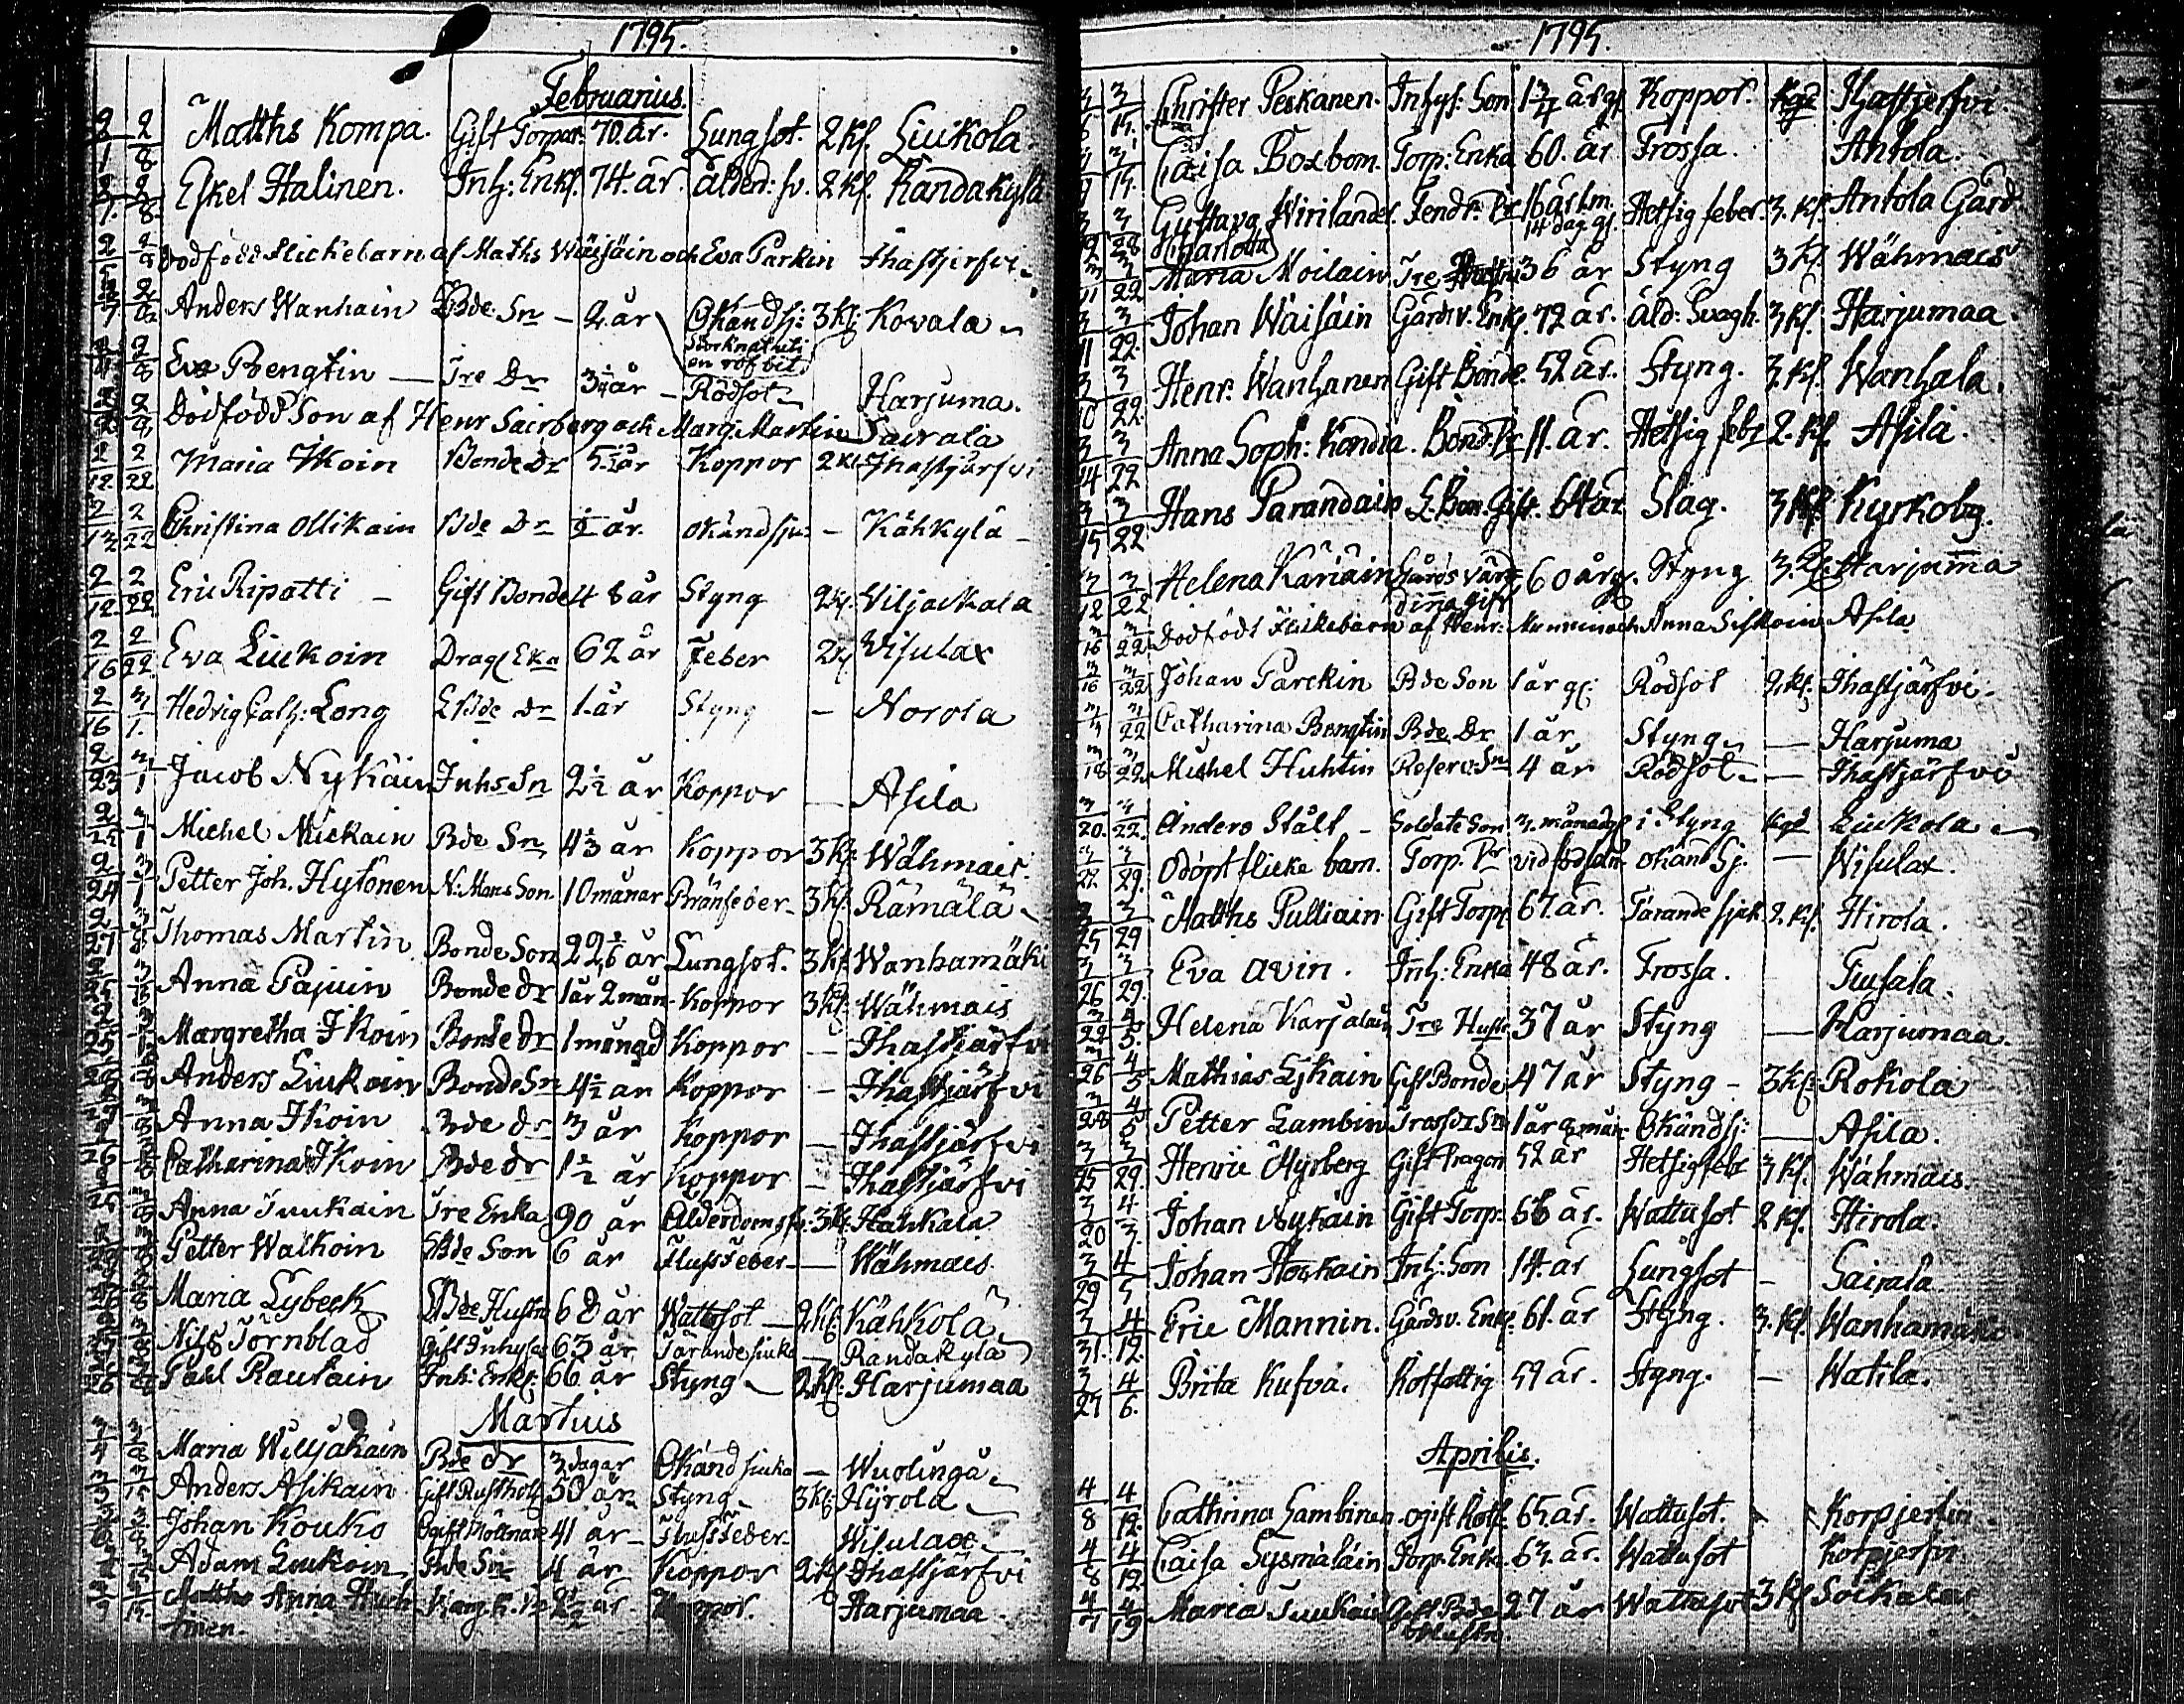 1795.
Februarius.
2/1 2/8 Matths Kompa. Gift Torpar. 70. år. Lungsot. 2 Kl. Liukola.
2/1. 2/8. Eskel Halinen. Inh: Enkl. 74. år. ålderd: sv. 2 Kl. Randakylä
2/5 2/8 Dödfödd flickebarn af Maths Wäisäin och Eva Parkin Ihastjerfvi.
2/7 Anders Wanhain Bde Sn – 2 år Okänd sj: 3 Kl: Kovala
en rof bit
2/8 Eva Bengtin — Tre Dr 3 1/4 år – Rödsot – Harjuma.
Dödfödd Son af Henr Sairberg och Marg: Martin Sairala
2/12. 2/22. Maria Ikoin Bonde Dr 5 1/2 år Koppor 2 Kl. Ihastjärfvi
2/13 2/22 Christina Ollikain Bde Dr 1/2 år. okänd sju: – Kähkylä –
2/12. 2/22. Eric Ripatti – Gift Bonde 48 år Styng 2 Kl. Viljackala
2/16 2/22. Eva Liukoin Drag Eka 62 år Feber 2 Kl Visulax
2/16 3/1. Hedvig Cath: Long E Bde dr 1 år Styng – Norola
2/23 3/1 Jacob Nykäin Inhs Sn 2 1/2 år Koppor — Asila
2/25 3/1 Michel Mickain Bde Sn 4 3 år Koppor 3 Kl: Wähmais.
2/24 3/1 Petter Joh. Hytönen N: Mans Son 10 månar Bränfeber – 3 Kl. Rämälä
2/27 3/8 Thomas Martin Bonde Son 22 år Lungsot. 3 Kl. Wanhamäki
Anna Pajuin Bonde dr 1 år 2 mån – Koppor 3 Kl: Wähmais
Margretha Ikoin Bonde dr 1 månad Koppor – Ihastjärfvi
Anders Liukoin Bonde Sn 4 1/2 år Koppor – Ihastjärfvi
Anna Ikoin Bde dr 3 år Koppor — Ihastjärfvi
Catharina Ikoin Bde dr 1 1/2 år Koppor – Ihastjärfvi
Anna Tuukain Tre Enka 90 år Ålderdoms sv: 3 Kl. Hatkala
Petter Walkoin Bde Son 6 år Flussfeber – Wähmais
Maria Lybeck Bde Hustru 68 år Wattusot – 2 Kl: Kähkola
Nils Törnblad Gift Inhyses 63 år Tärande siuka — Randakylä
Påhl Rautain Inh: Enkl: 66 år Styng – 2 Kl: Harjumaa
Martius
3/4 3/8 Maria Wiljakain Bde dr 3 dagar Okänd siuka — Wuolinga
Anders Asikain Gift Rusthåll 50 år Styng 3 Kl: Hyrola
Johan Kouko Ogift 41 år – Flussfeber – Wisulax
Adam Liukoin Bde Sn 4 år Koppor 2 Kl Ihastjärfvi
Anna Huch 2 1/2 år Koppor. Harjumaa.
tinen.
1795.
Christer Peskanen. Inhys: Son 1 3/4 års gl Koppor. Kgd Ihastjerfvi.
Caisa Boxbom. Torp: Enka 60. år Trossa. Antola.
Gustava Wirilander. Fendr: Dr 16 år 1 m. Hetsig feber. 3. Kl. Antola Gård
Charlotta 14 dag. gl.
3/11 3/22 Maria Moilain Tre 36 år Styng 3 Kl Wähmais
3/11 3/22. Johan Wäisäin Gårdsv. Enkl. 72 år. åld: Svagh. 3 Kl. Harjumaa.
3/10 3/22. Henr. Wanhanen Gift Bonde. 52 år. Styng. 3. Kl. Wanhala.
3/14 3/22 Anna Soph: Kondia. Bond. Dr 11. år. Hetsig feb: 2. Kl. Asila.
3/15 3/22 Hans Parandain E. Bon. Gift. 64 år Slag. 3 Kl Kyrkoby.
3/12 3/22 Helena Käriäin Gårds vär= 60 år gl. Styng 3. Kl. Harjuma
dinna gift
3/16 3/22 Dödfödt Flickebarn af Henr: och Anna Siskoin Asila
3/16 3/22 Johan Parckin Bde Son 1 år gl: Rödsot 2. Kl: Ihastjärfvi –
3/22 Catharina Bengtin Bde Dr 1 år Styng — Harjuma
3/18 3/22. Michel Huhtin Reserv: Sn 4 år Rödsot – — Ihastjärfvi
3/20. 3/22. Anders Stålt – Soldate Son 3. månad gl i Styng Kgd Liukola
3/29. Odöpt flicke barn. Torp. Dr vid födslan okänd Sj. — Wisulax.
3/25 3/29 Matths Pulliain. Gift Torp. 67. år. Tärande sjuk 2. Kl. Hirola.
3/26 3/29. Eva Avin. Inh: Enka 48 år. Trossa. Tuusala.
4/5. Helena Karjalain Tre Hustr 37 år Styng — Harjumaa.
3/26 4/5 Mathias Gift Bonde 47 år Styng – 3 Kl: Rokola
3/28 4/5 Petter Lambin 1 år 2 mån Okänd sj: — Asila.
3/25 3/29. Henric Myrberg Gift Dragon 52 år Hetsig feb: 3 Kl. Wähmais.
3/20 4/3. Johan Nykäin Gift Torp. 66 år. Wattusot 2 Kl. Hirola.
3/29 4/5 Johan Inh: Son 14. år Lungsot – Sairala.
3/31. 4/12. Eric Mannin. Gårdsv. Enkl. 61. år Styng. 3. Kl. Wanhamäki
3/27 4/6. Brita Kufva. Rotfattig 59 år. Styng. – Watila.
Aprilis.
4/8 4/12. Cathrina Lambinen. ogift 65 år. Wattusot. Korpjerfvi.
4/8 4/12 Caisa Sysmäläin Torp. Enka. 63. år. Wattusot Korpjerfvi
4/7 4/19 Maria Tuukain Gift Bde 27 år Wattusot 3 Kl Sockala
Hustru.